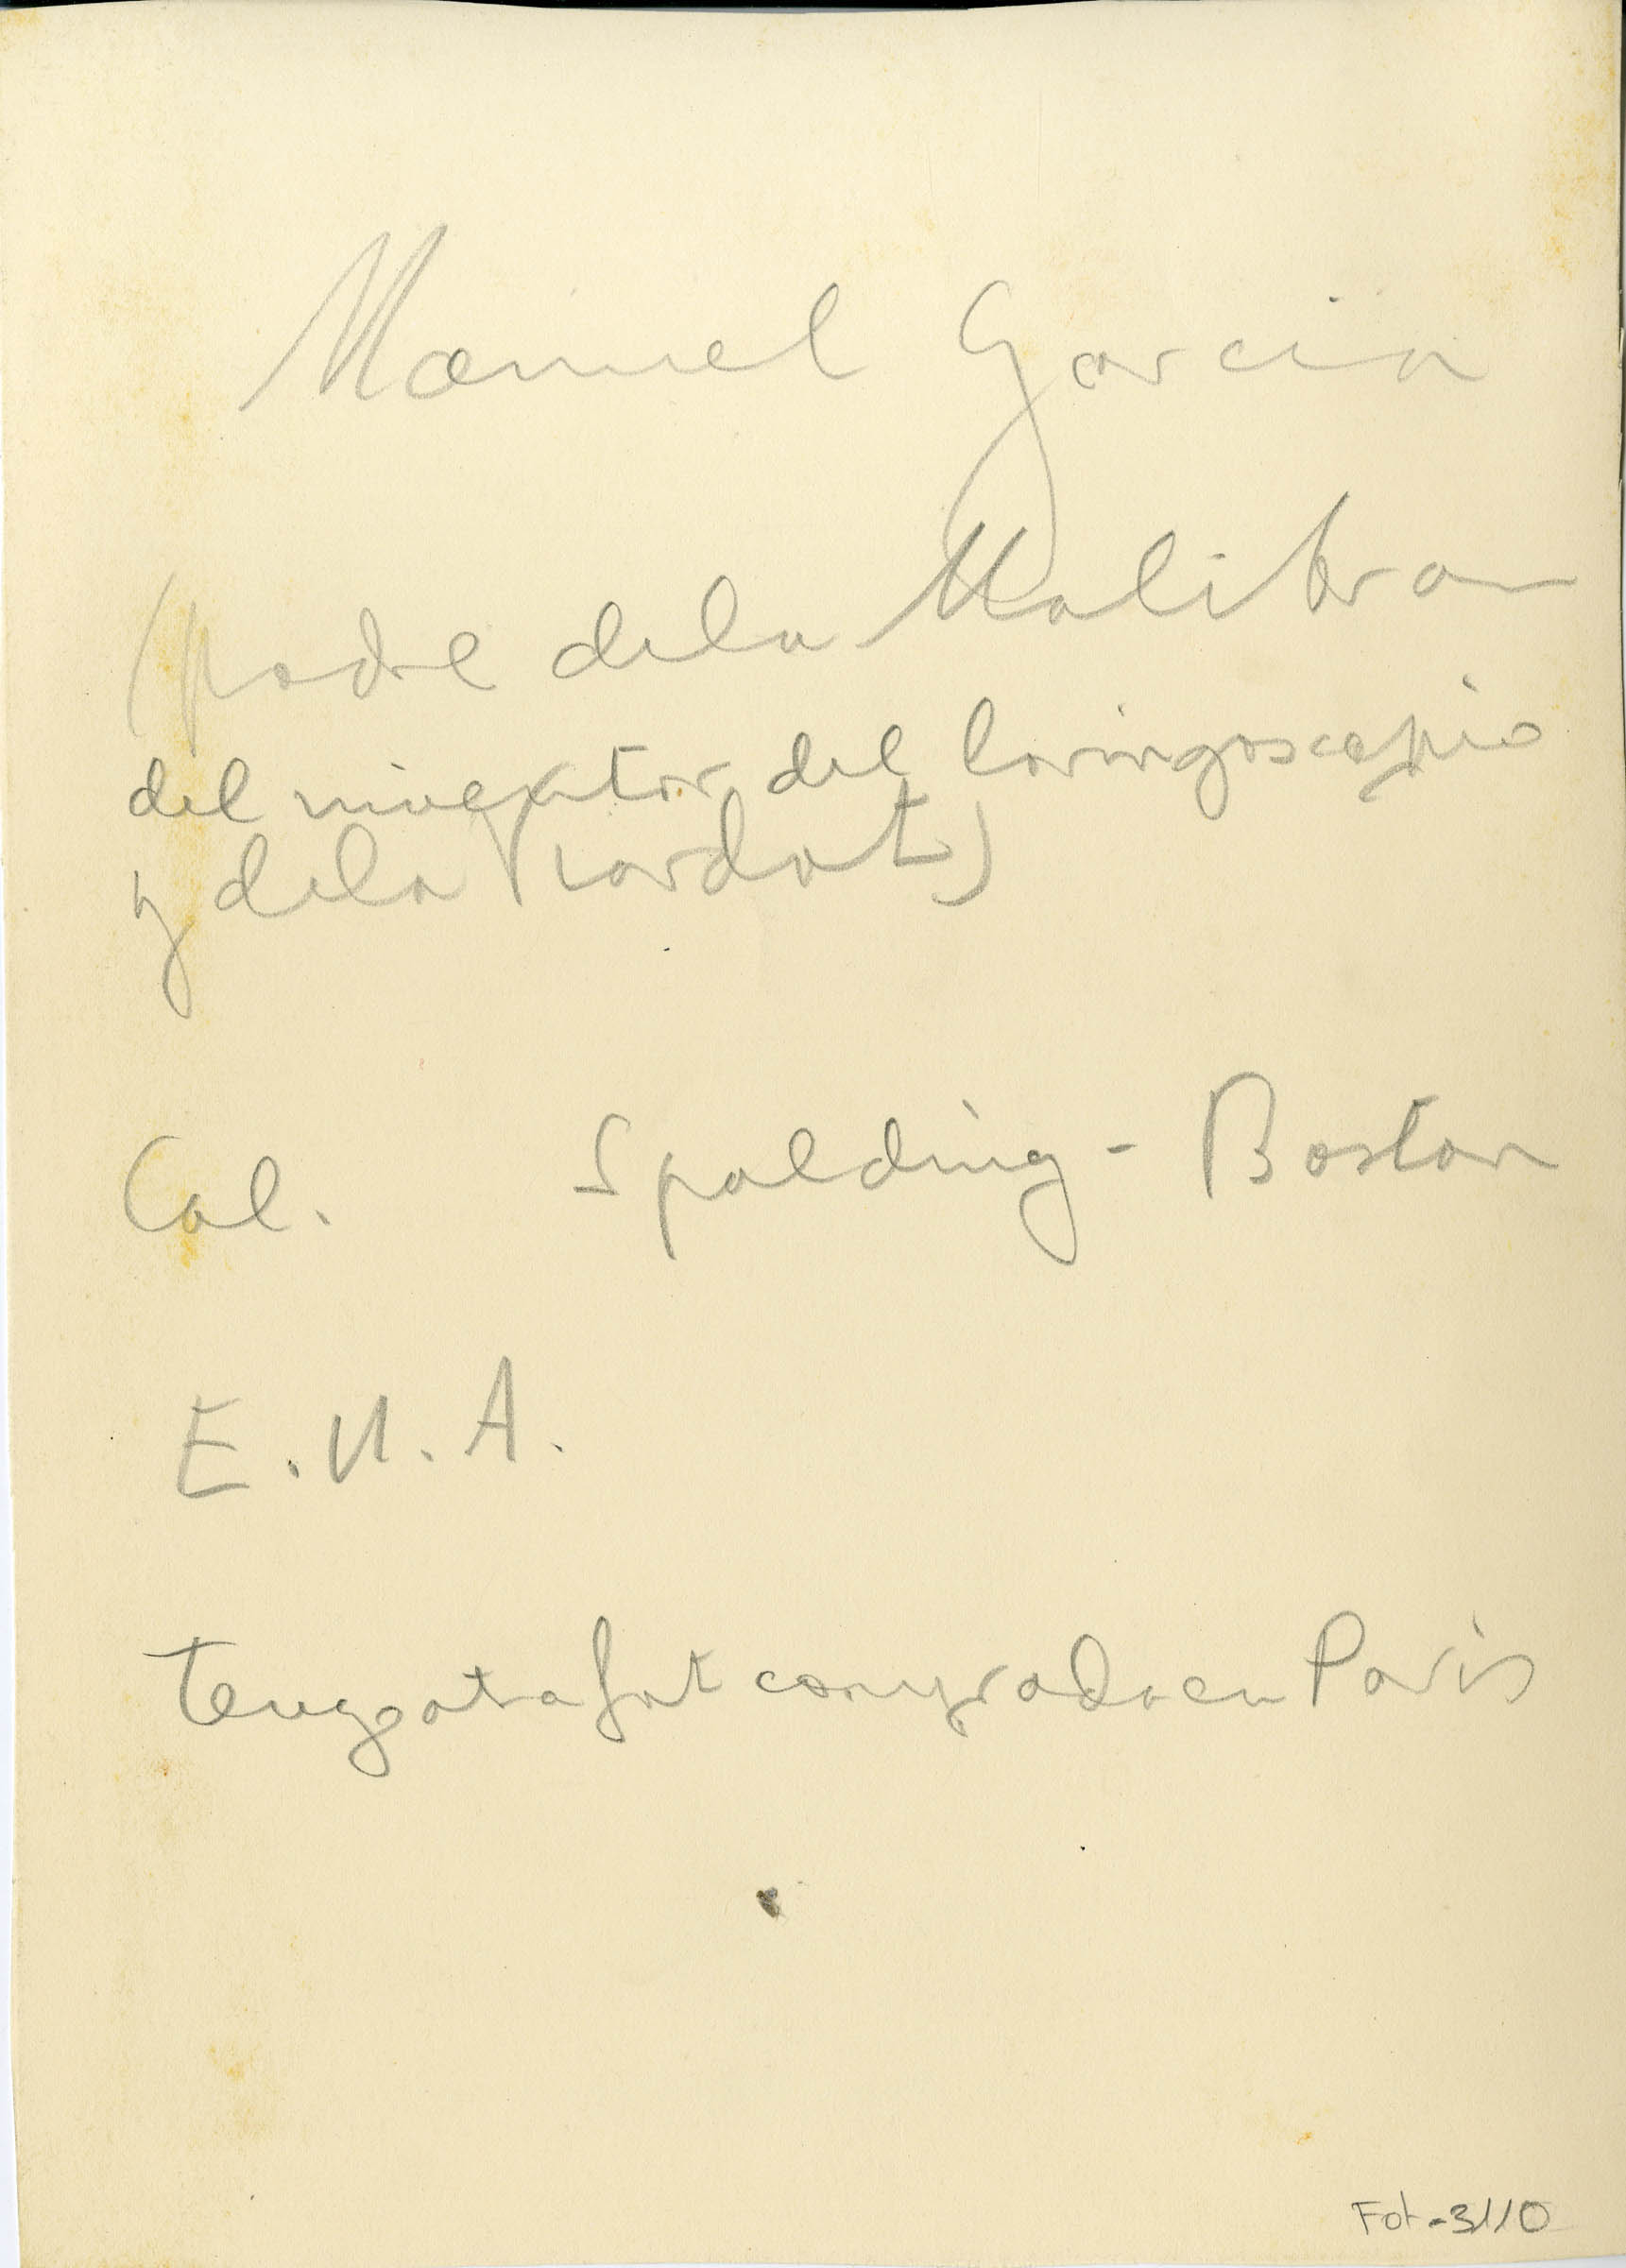 Manuel Garcia
(padre de la Malibran
del inventor del laringoscopio
y de la Viardot)
Col. Spalding - Boston
E.U.A.
Tengo otra fot comprada en Paris
Fot-3110